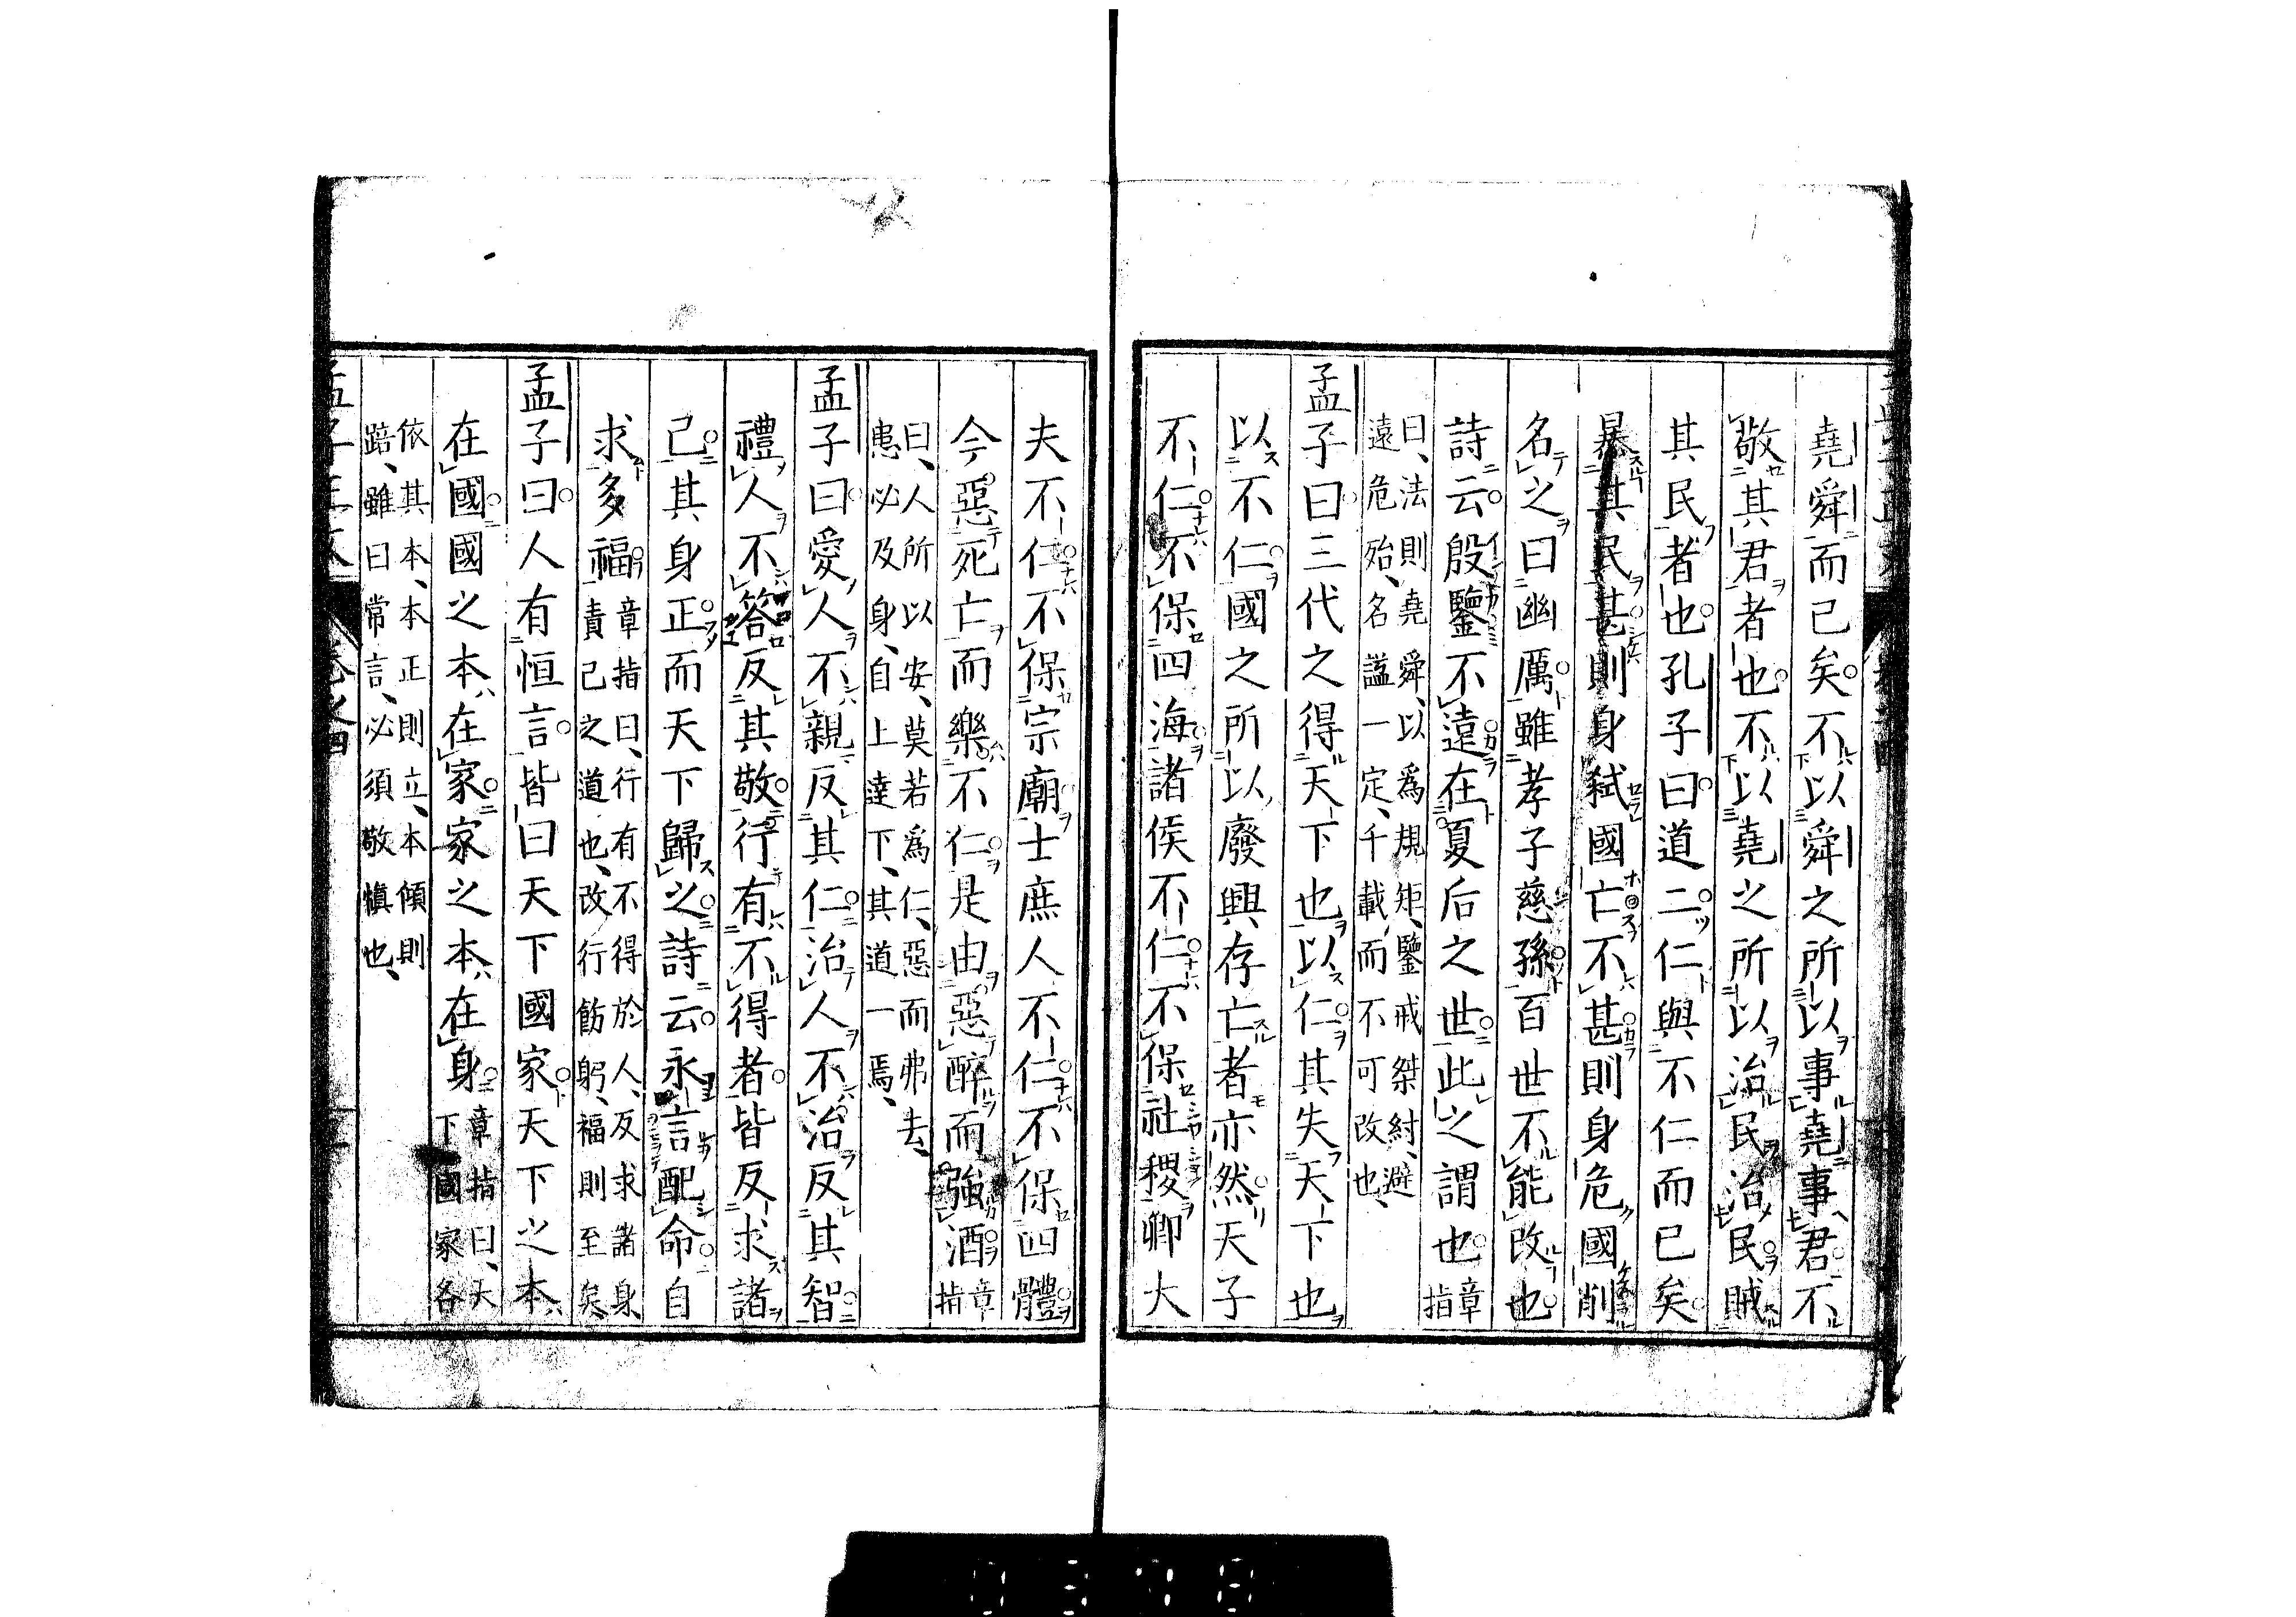 堯舜而已矣不以舜之所以事堯事君不
敬其君者也不以堯之所以治民治民賊
其民者也孔子曰道二仁與不仁而已矣
暴其民甚則身弑國亡不甚則身危國削
名之曰幽厲雖孝子慈孫百世不能改也
詩云殷鑒不遠在夏后之世此之謂也章指
曰、法則堯舜、以爲規矩、鑒戒桀紂、避
遠危殆、名謚一定、千載而不可改也、
孟子曰三代之得天下也以仁其失天下也
以不仁國之所以廢興存亡者亦然天子
不仁不保四海諸侯不仁不保社稷卿大
夫不仁不保宗廟士庶人不仁不保四體
今惡死亡而樂不仁是由惡醉而強酒章指
曰、人所以安、莫若爲仁、惡而弗去、
患必及身、自上達下、其道一焉、
孟子曰愛人不親反其仁治人不治反其智
禮人不答反其敬行有不得者皆反求諸
己其身正而天下歸之詩云永言配命自
求多福章指曰、行有不得於人、反求諸身、
責己之道也、改行飭躬、福則至矣、
孟子曰人有恒言皆曰天下國家天下之本
在國國之本在家家之本在身章指曰、天
下國家各
依其本、本正則立、本傾則
踣、雖曰常言、必須敬慎也、
卷之四
0378